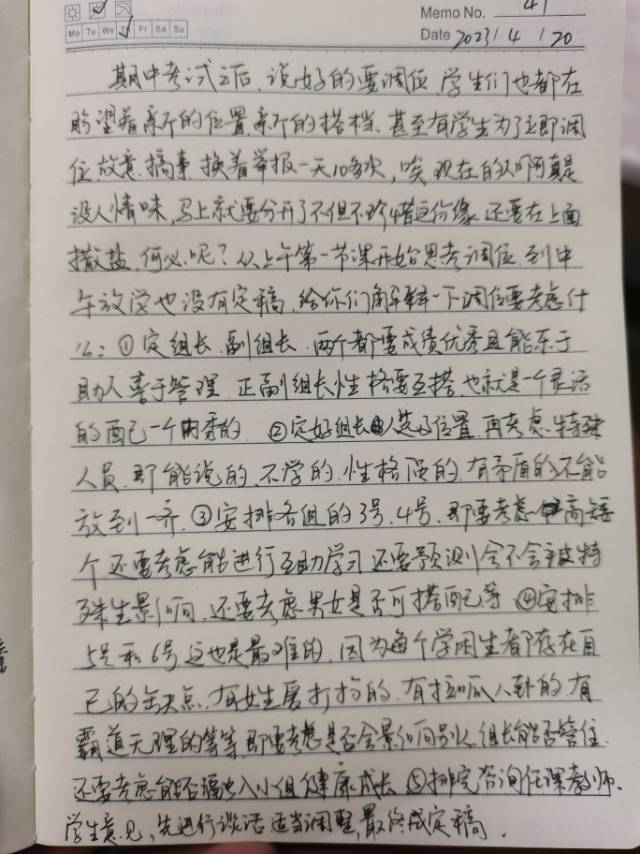 Memo No. 41
Mo Tu We Fr Sa Su
Date 2023 / 4 / 20
期中考试之后、说好的要调位 学生们也都在
盼望着新的位置新的搭档、甚至有学生为了立即调
位故意搞事 换着举报一天10多次,唉 现在的人啊真是
没人情味,马上就要分开了不但不珍惜这份缘 还要在上面
撒盐、何必呢?从上午第一节课开始思考调位 到中
午放学也没有定稿、给你们解释一下调位要考虑什
么:①定组长、副组长、两个都要成绩优秀且能乐于
助人善于管理 正副组长性格要互搭、也就是一个灵活
的配一个内柔的 ②定好组长人选好位置 再考虑特殊
人员、即能说的、不学的、性格强的、有矛盾的不能
放到一齐、③安排各组的3号、4号、即要考虑高矮
个 还要考虑能进行互助学习 还要预测会不会被特
殊生影响、还要考虑男女是否可搭配等 ④安排
5号和6号 这也是最难的、因为每个学困生都存在自
己的缺点、有好打扮的、有拉呱八卦的、有
霸道无理的等等、即要考虑是否会影响别人 组长能否管住
还要考虑能否融入小组健康成长 ⑤排完咨询任课教师、
学生意见,先进行谈话 适当调整,最终成定稿.